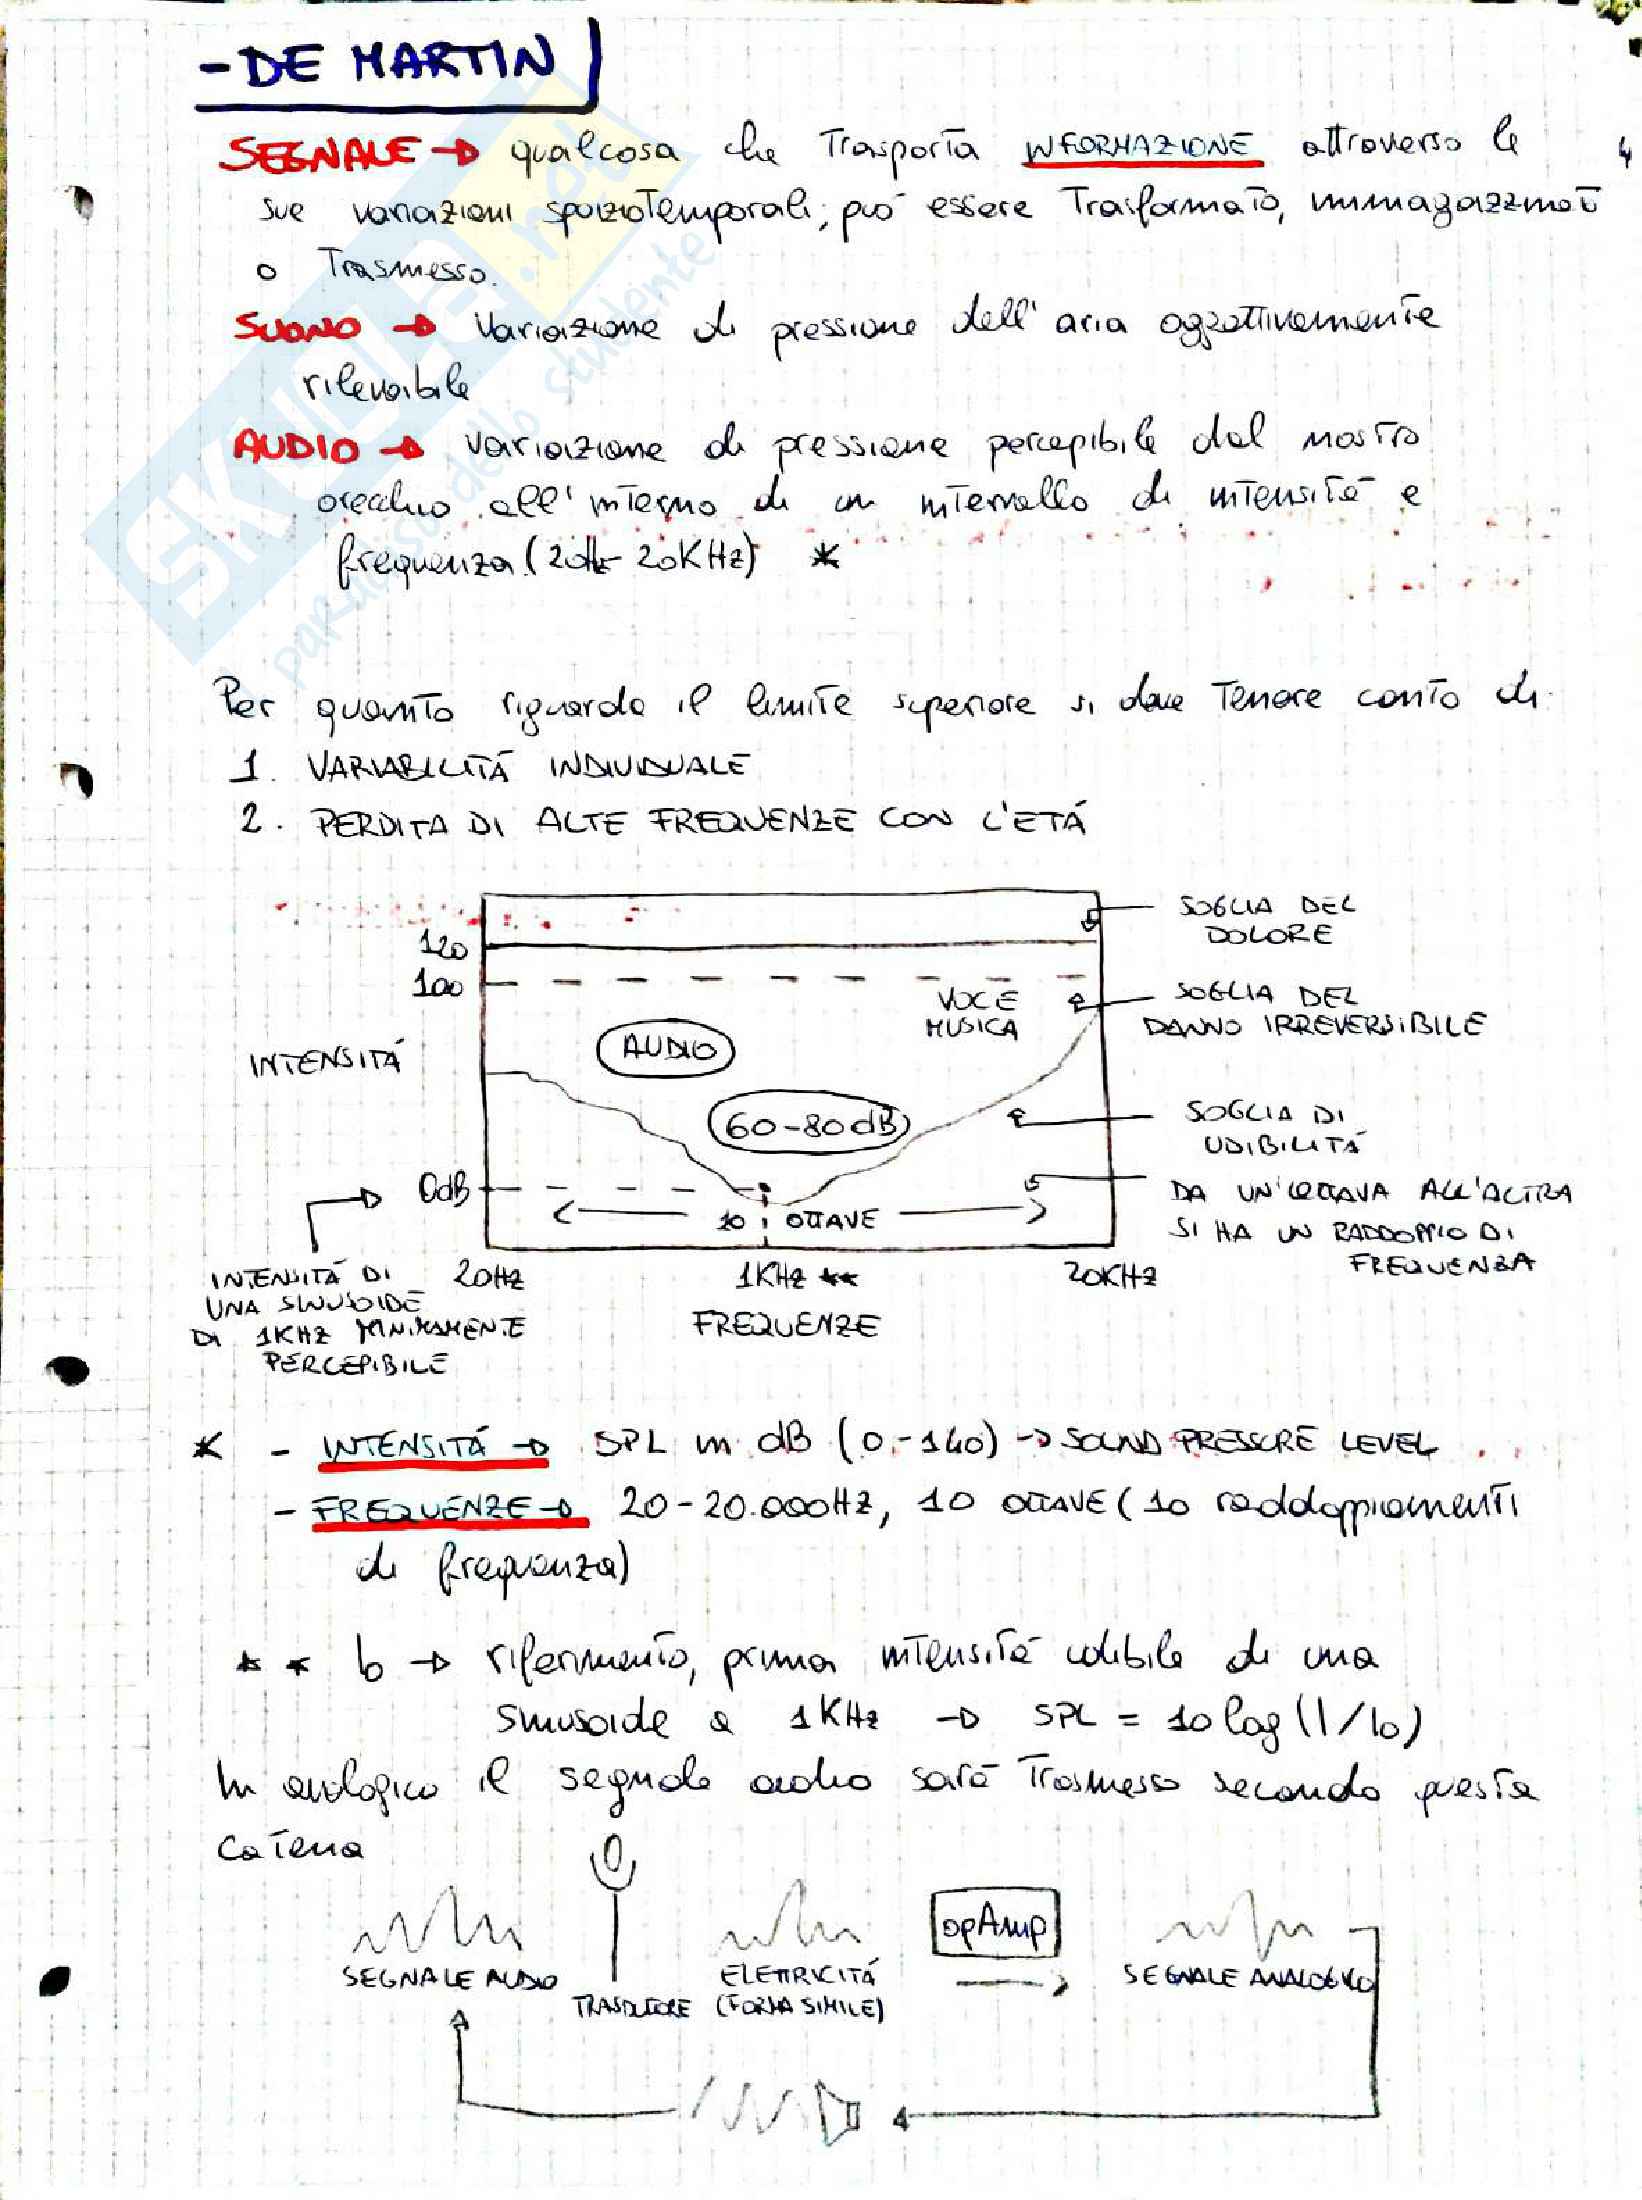 - DE MARTIN
SEGNALE → qualcosa che Trasporta INFORMAZIONE attraverso le
sue variazioni spazioTemporali; può essere Trasformato, immagazzinato
o Trasmesso.
SUONO → Variazione di pressione dell'aria oggettivamente
rilevabile
AUDIO → variazione di pressione percepibile dal nostro
orecchio all'interno di un intervallo di intensità e
frequenza (20Hz - 20KHz) *
Per quanto riguarda il limite superiore si deve Tenere conto di
1. VARIABILITÁ INDIVIDUALE
2. PERDITA DI ALTE FREQUENZE CON L'ETÁ
SOGLIA DEL
DOLORE
120
100
VOCE
MUSICA
SOGLIA DEL
DANNO IRREVERSIBILE
INTENSITÁ
AUDIO
60-80dB
SOGLIA DI
UDIBILITÁ
0dB
10 OTTAVE
DA UN'OTTAVA ALL'ALTRA
SI HA UN RADDOPPIO DI
FREQUENZA
INTENSITÁ DI
UNA SINUSOIDE
DI 1KHz MINIMAMENTE
PERCEPIBILE
20Hz
1KHz **
20KHz
FREQUENZE
* - INTENSITÁ → SPL in dB (0-140) → SOUND PRESSURE LEVEL
- FREQUENZE → 20-20.000Hz, 10 OTTAVE (10 raddoppiamenti
di frequenza)
** Io → riferimento, prima intensità udibile di una
sinusoide a 1KHz → SPL = 10 log (I/Io)
In analogico il segnale audio sarà Trasmesso secondo questa
catena
SEGNALE AUDIO
TRASDUTTORE
ELETTRICITÁ
(FORMA SIMILE)
opAmp
SEGNALE ANALOGICO
SKUOLA.net
il paradiso dello studente